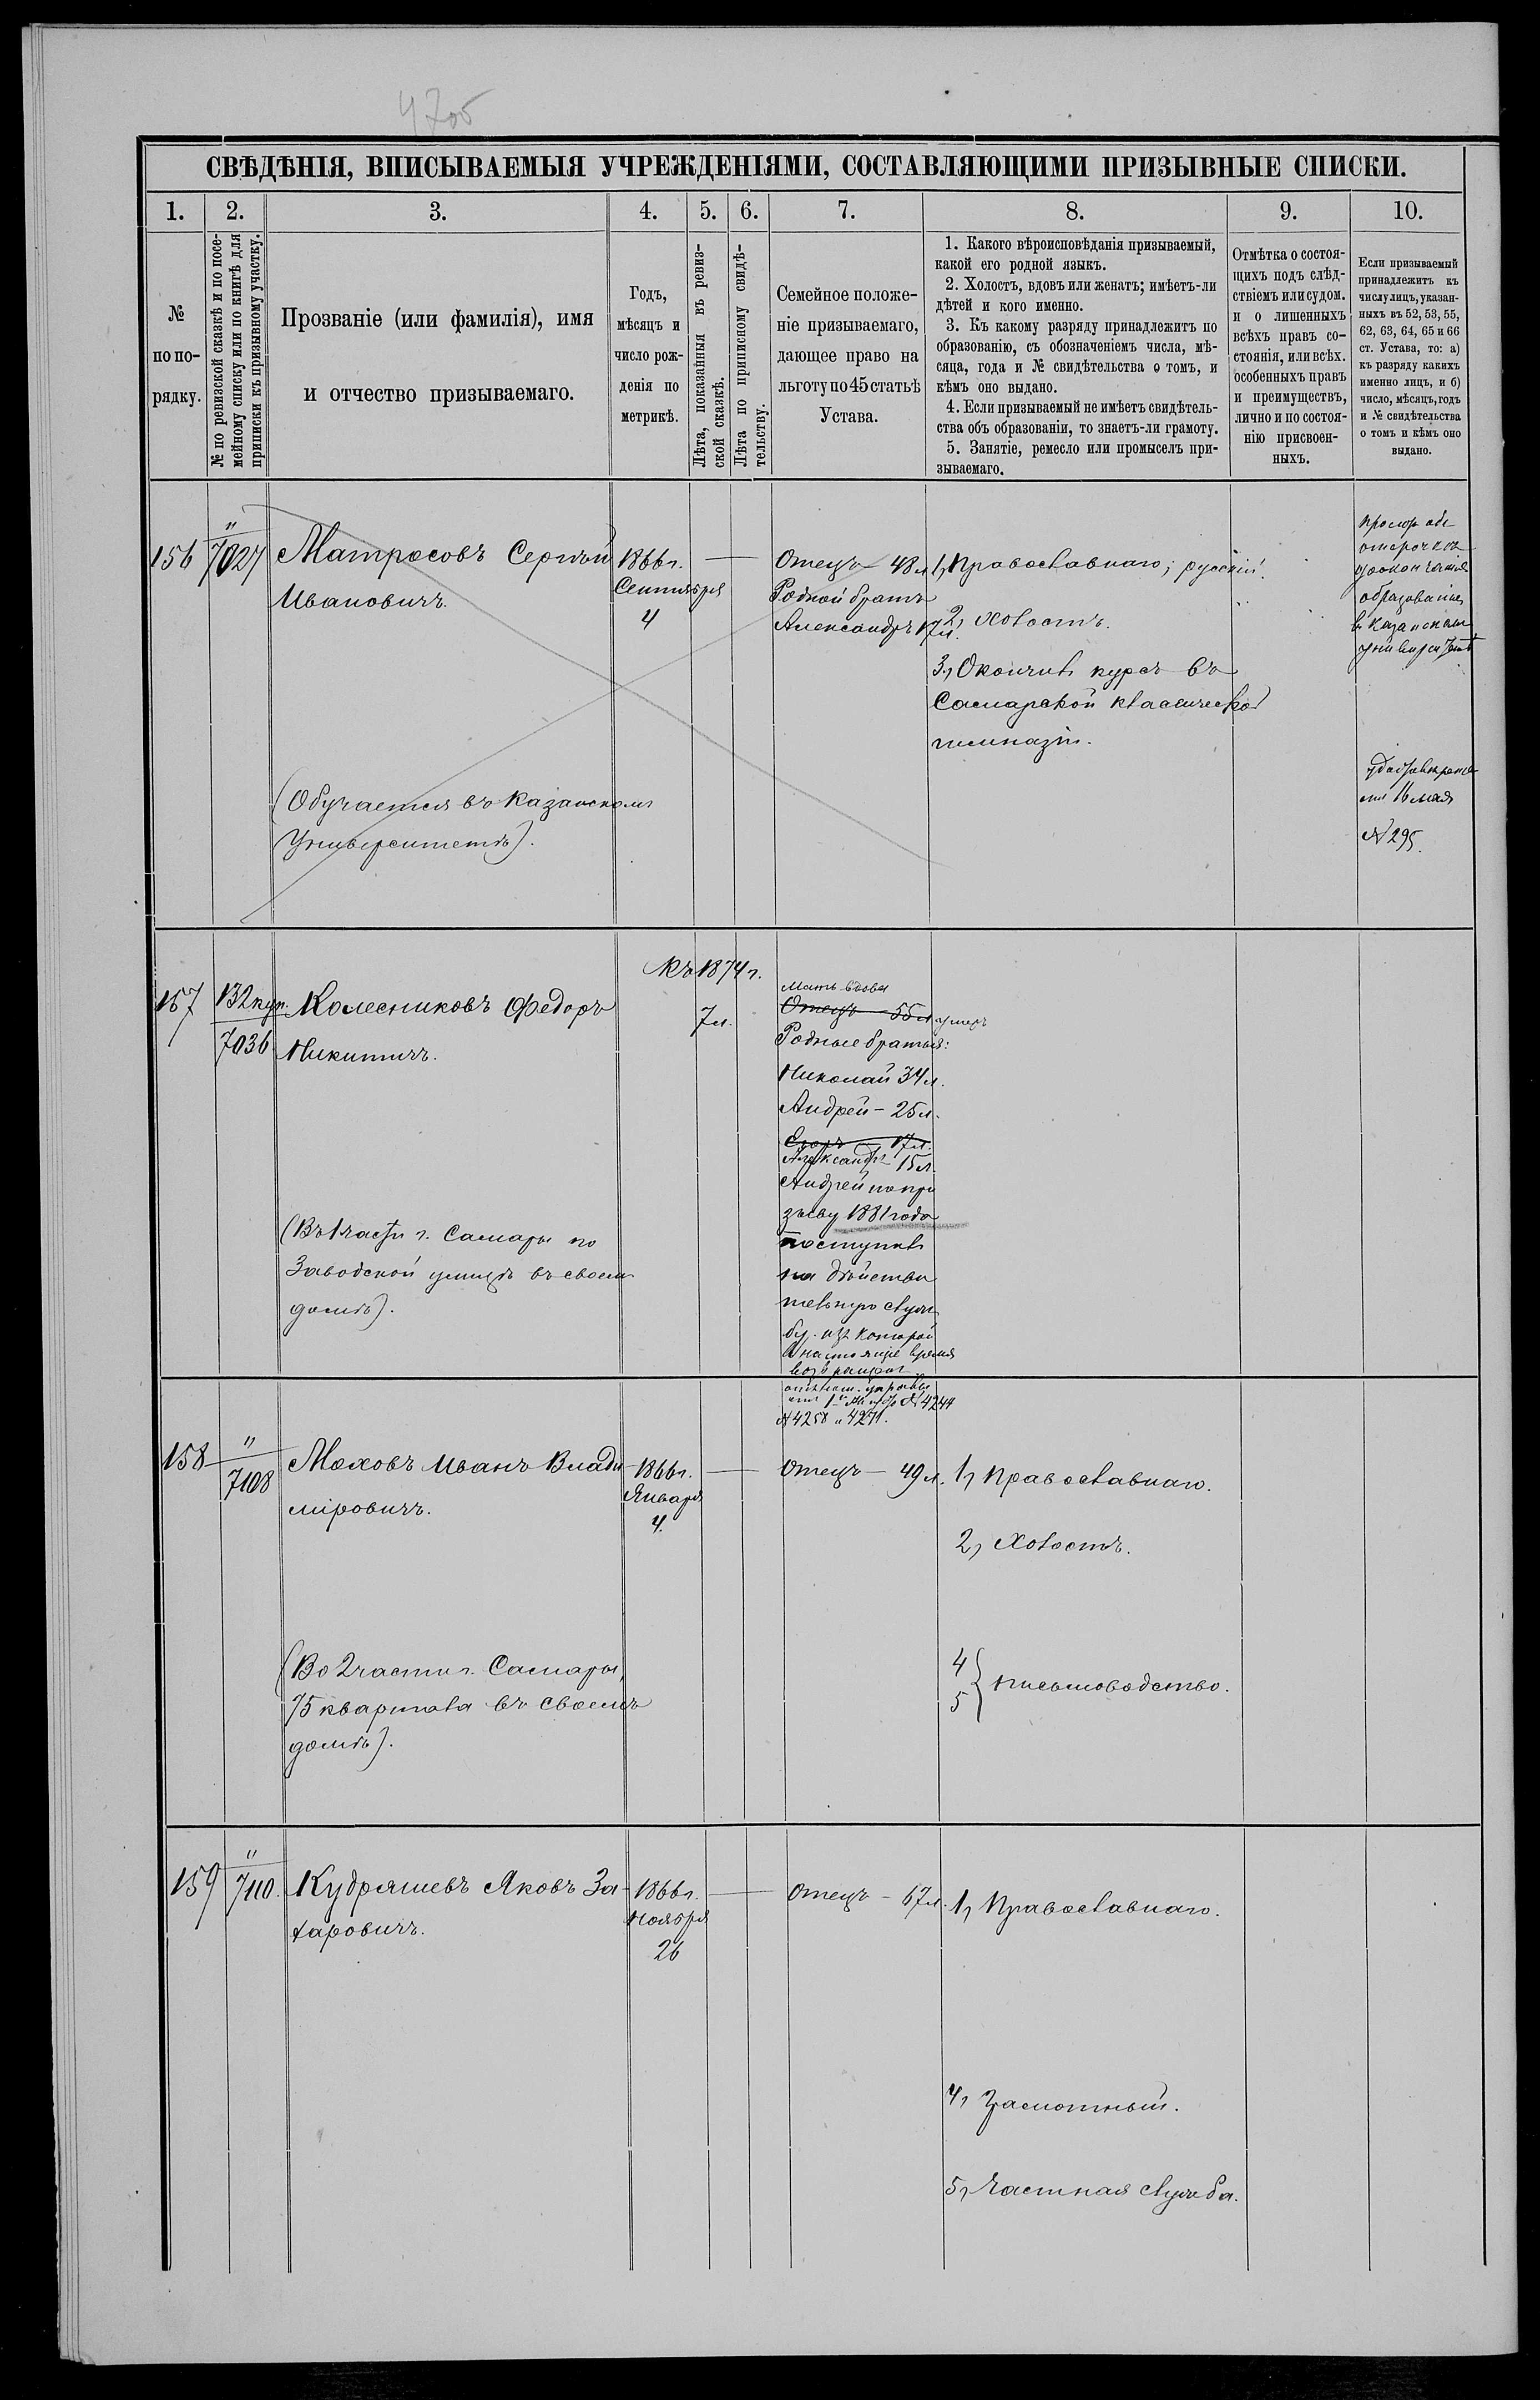 47об
СВѢДѢНІЯ, ВПИСЫВАЕМЫЯ УЧРЕЖДЕНІЯМИ, СОСТАВЛЯЮЩИМИ ПРИЗЫВНЫЕ СПИСКИ.
1. 2. 3. 4. 5. 6. 7. 8. 9. 10.
№
по по-
рядку.
№ по ревизской сказкѣ и по посе-
мейному списку или по книгѣ для
приписки къ призывному участку.
Прозваніе (или фамилія), имя
и отчество призываемаго.
Годъ,
мѣсяцъ и
число рож-
денія по
метрикѣ.
Лѣта, показанныя въ ревиз-
ской сказкѣ.
Лѣта по приписному свидѣ-
тельству.
Семейное положе-
ніе призываемаго,
дающее право на
льготу по 45 статьѣ
Устава.
1. Какого вѣроисповѣданія призываемый,
какой его родной языкъ.
2. Холостъ, вдовъ или женатъ; имѣетъ-ли
дѣтей и кого именно.
3. Къ какому разряду принадлежитъ по
образованію, съ обозначеніемъ числа, мѣ-
сяца, года и № свидѣтельства о томъ, и
кѣмъ оно выдано.
4. Если призываемый не имѣетъ свидѣтель-
ства объ образованіи, то знаетъ-ли грамоту.
5. Занятіе, ремесло или промыселъ при-
зываемаго.
Отмѣтка о состоя-
щихъ подъ слѣд-
ствіемъ или судомъ.
и о лишенныхъ
всѣхъ правъ со-
стоянія, или всѣхъ.
особенныхъ правъ
и преимуществъ,
лично и по состоя-
нію присвоен-
ныхъ.
Если призываемый
принадлежитъ къ
числу лицъ, указан-
ныхъ въ 52, 53, 55,
62, 63, 64, 65 и 66
ст. Устава, то: а)
къ разряду какихъ
именно лицъ, и б)
число, мѣсяцъ, годъ
и № свидѣтельства
о томъ и кѣмъ оно
выдано.
156
"
7027
Матросовъ Сергѣй
Ивановичъ.
(Обучается въ Казанскомъ
Университетѣ).
1866 г.
Сентября
4
Отецъ - 48 л.
Родной братъ
Александръ 17 л.
1, Православнаго; русскій.
2, Холостъ.
3, Окончилъ курсъ въ
Самарской классической
гимназіи.
отсрочки
образованія
въ Казанском
университетѣ
16 мая
№ 295.
157
132 куп.
7036
Колесниковъ Федоръ
Никитичъ.
(Въ 1 части г. Самары по
Заводской улицѣ въ своемъ
домѣ).
Къ 1874 г.
7 л.
Мать вдова
Отецъ - 55 л. умеръ
Родные братья:
Николай 34 л.
Андрей - 25 л.
Егоръ - 17 л.
Александръ 15 л.
Андрей по при
зыву 1881 года
поступилъ
на дѣйстви
тельную служ
бу. изъ которой
въ настоящее время
возвращенъ
№ 4244
№ 4258 и 4271.
158
"
7108
Моховъ Иванъ Влади
міровичъ.
(Во 2 части г. Самары,
75 квартала въ своемъ
домѣ).
1866 г.
Января
4.
Отецъ - 49 л.
1, Православнаго.
2, Холостъ.
4
5 } письмоводство.
159
"
7110.
Кудряшевъ Яковъ За
харовичъ.
1866 г.
Ноября
26
Отецъ - 67 л.
1, Православнаго.
4, Грамотный.
5, Частная служба.